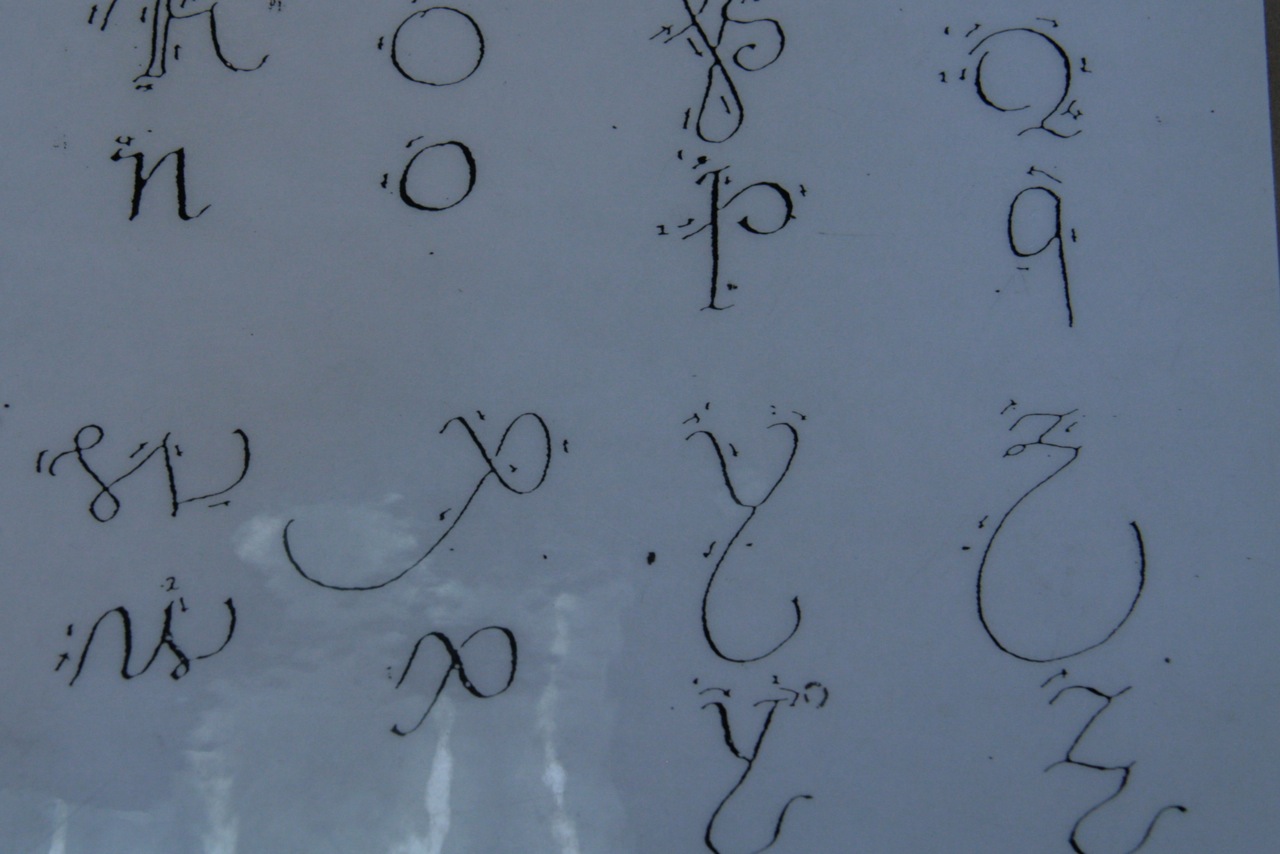 N O P Q
n o p q
W X Y Z
w x y z